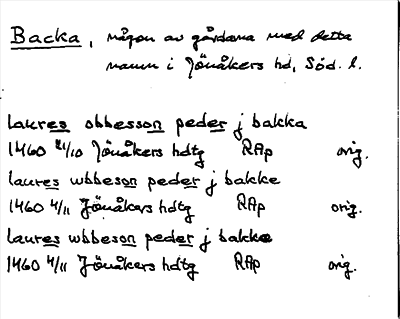 Backa, någon av gårdarna med detta
namn i Jönåkers hd, Söd. l.
laures obbesson peder j bakka
1460 21/10 Jönåkers hdtg RAp orig.
laures wbbeson peder j bakke
1460 4/11 Jönåkers hdtg RAp orig.
laures wbbeson peder j bakke
1460 4/11 Jönåkers hdtg RAp orig.